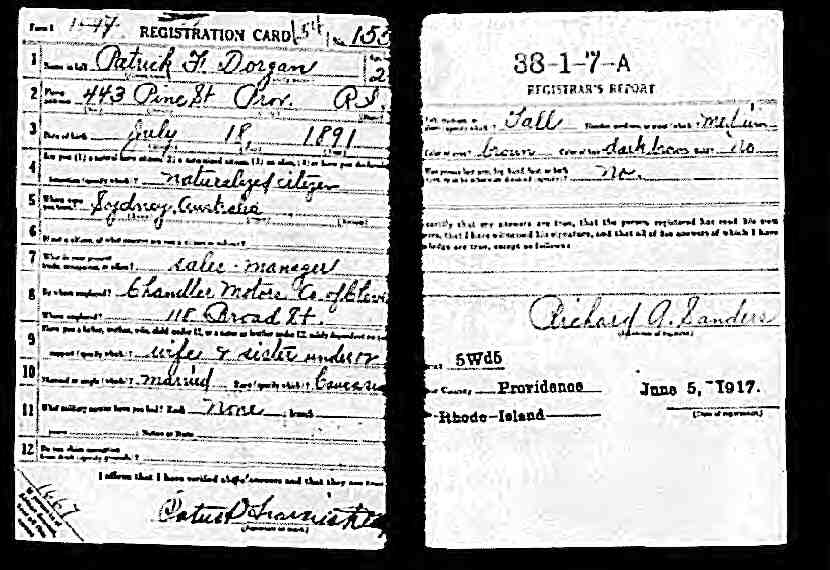 Form 1 1547 REGISTRATION CARD 154 No. 155
1 Name in full Patrick F. Dorgan
2 Home address 443 Pine St Prov. R.I.
3 Date of birth July 18 1891
4 Are you (1) a natural-born citizen, (2) a naturalized citizen, (3) an alien, (4) or have you declared
intention (specify which)? naturalized citizen
5 Where were you born? Sydney, Australia
6 If not a citizen, of what country are you a citizen or subject?
7 What is your present trade, occupation, or office? sales-manager
8 By whom employed? Chandler Motors Co. of Cleve
Where employed? 118 Broad St.
9 Have you a father, mother, wife, child under 12, or a sister or brother under 12, solely dependent on
support (specify which)? wife & sister under
10 Married or single (which)? married Race (specify which)? Caucasia
11 What military service have you had? Rank None branch
years Nation or State
12 Do you claim exemption from draft (specify grounds)?
I affirm that I have verified above answers and that they are
(Signature or mark)
38-1-7-A
REGISTRAR'S REPORT
Tall medium
Color of eyes? brown Color of hair? dark brown Bald? No
No.
I certify that my answers are true, that the person registered has read his own
answers, that I have witnessed his signature, and that all of his answers of which I have
knowledge are true, except as follows:
Richard A. Sanders
(Signature of registrar)
5Wd5
County Providence June 5, 1917.
Rhode Island (Date of registration)